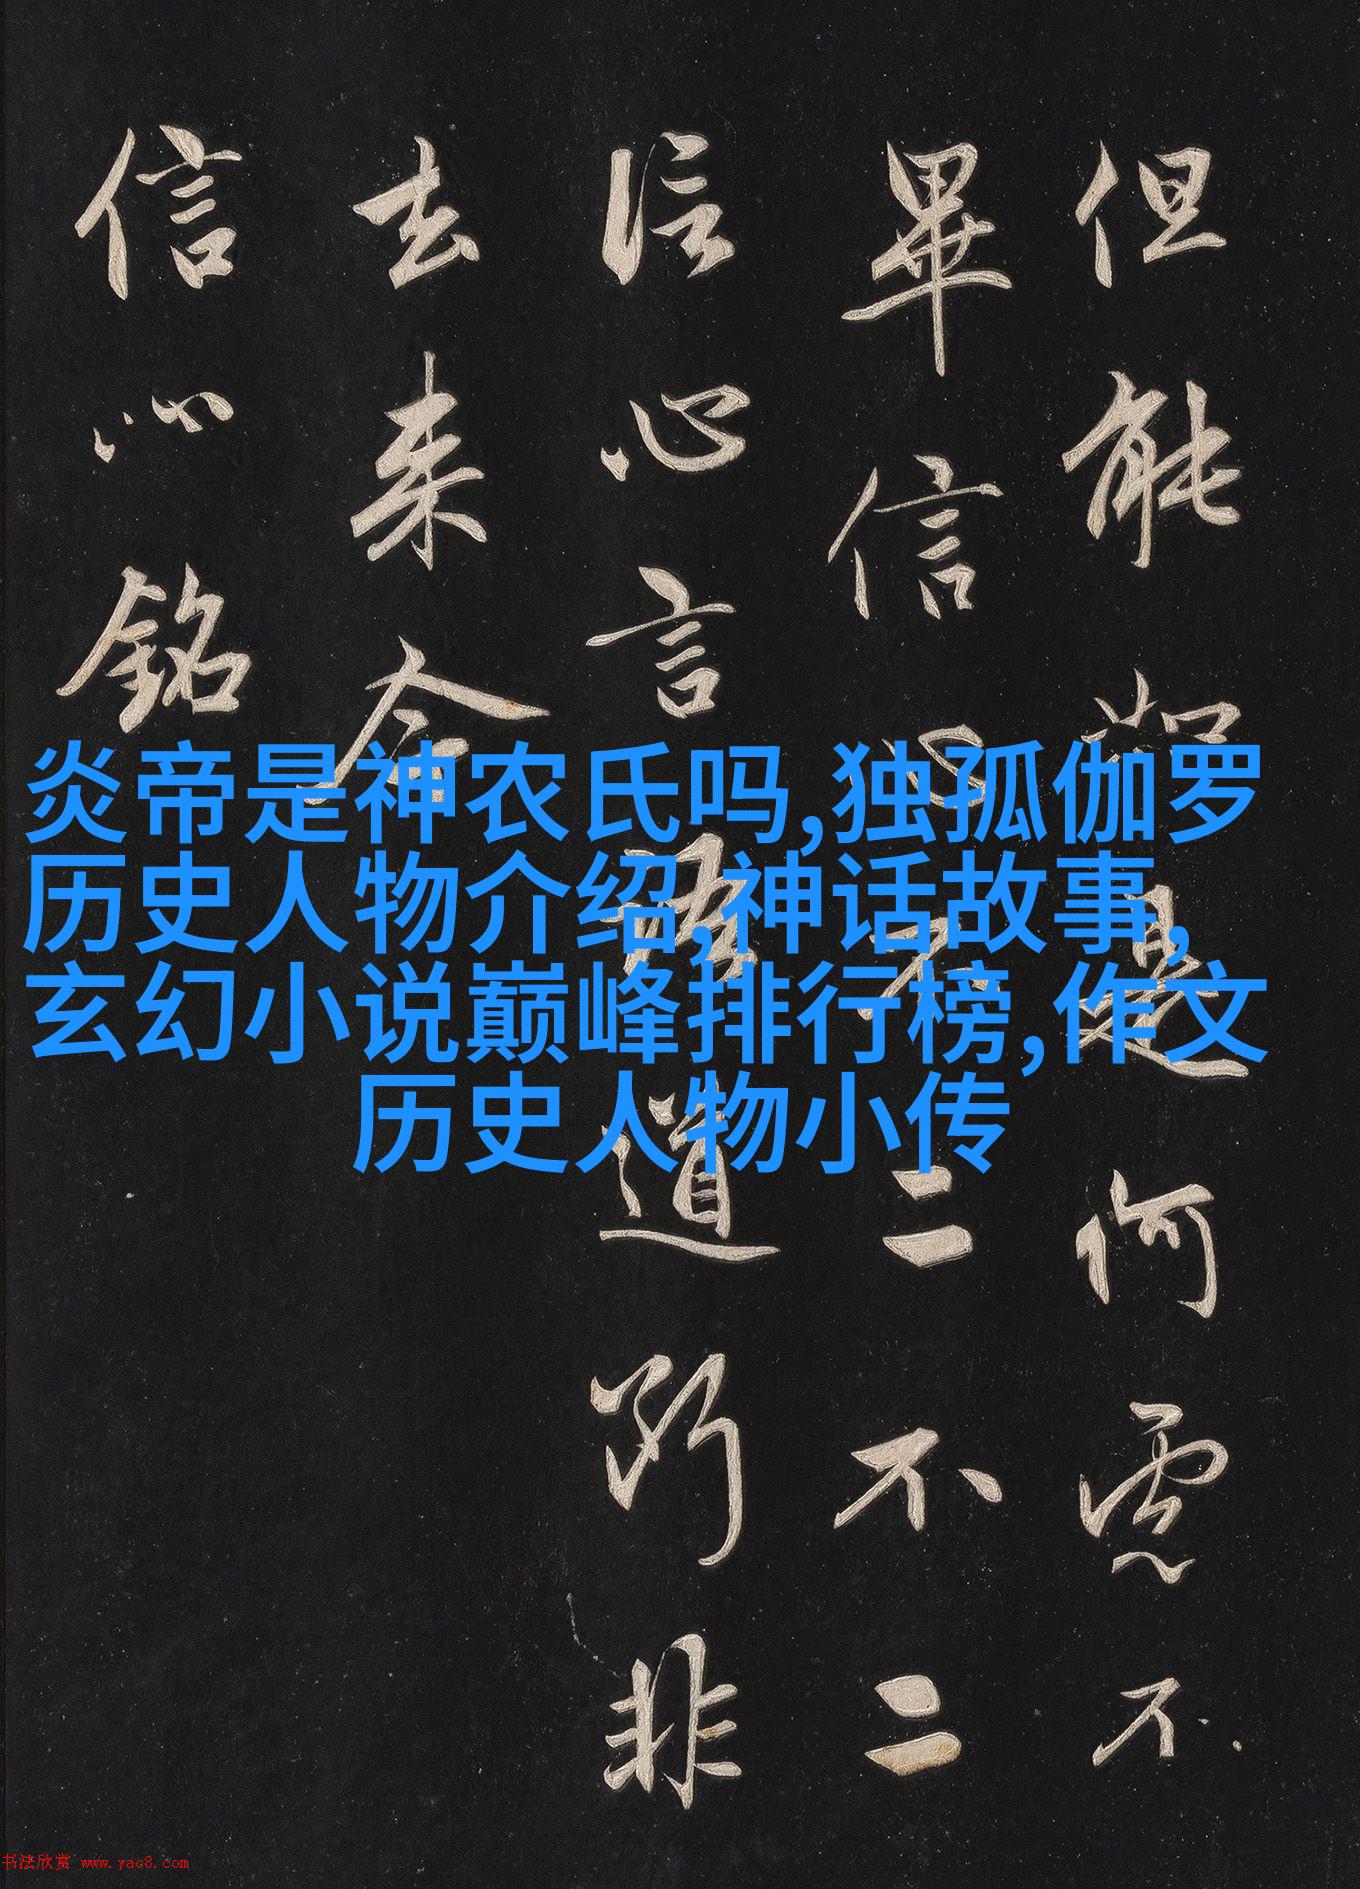 但能如是何慮不
畢信心不二不二
信心言語道断非
去来今
信心銘
炎帝是神农氏吗,独孤伽罗
历史人物介绍,神话故事,
玄幻小说巅峰排行榜,作文
历史人物小传
书法欣赏 www.yac8.com